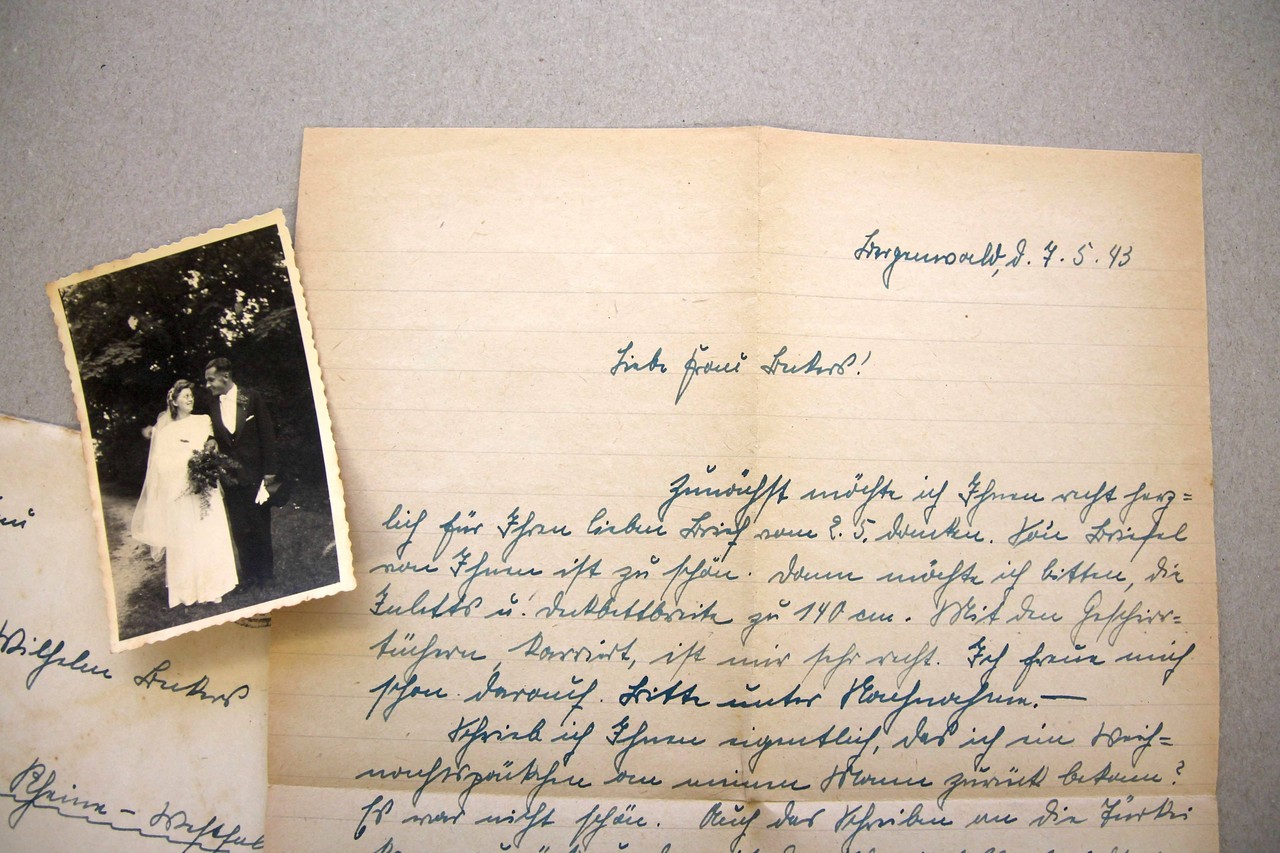 Bergenwald, d. 7. 5. 43
Liebe Frau Beckers!
Zunächst möchte ich Ihnen recht herz=
lich für Ihren lieben Brief vom 2. 5. danken. So'n Briefel
von Ihnen ist zu schön. Dann möchte ich bitten, die
Inletts u. Deckbettbreite zu 140 cm. Mit den Geschirr=
tüchern, karriert, ist mir sehr recht. Ich freue mich
schon darauf. Bitte unter Nachnahme.—
Schrieb ich Ihnen eigentlich, das ich ein Weih=
nachtspäckchen an meinen Mann zurück bekam?
Es war nicht schön. Auch das Schreiben an die Türkei
Wilhelm
Rheine - Westfal